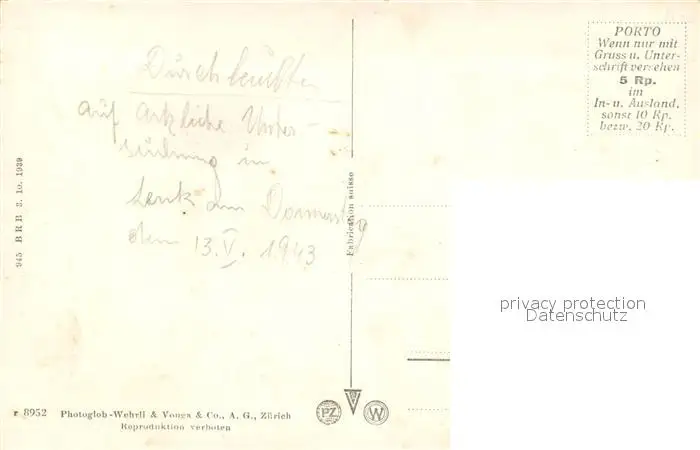 Durchleuchte
auf Arztliche Unter-
suchung in
Lenk am Donnerstag
den 13. V. 1943
PORTO
Wenn nur mit
Gruss u. Unter-
schrift versehen
5 Rp.
im
In- u. Ausland,
sonst 10 Rp.
bezw. 20 Rp.
945 BRB 3. 10. 1939
Fabrication suisse
privacy protection
Datenschutz
r 8952 Photoglob-Wehrli & Vouga & Co., A. G., Zürich
Reproduktion verboten
PZ
V
W